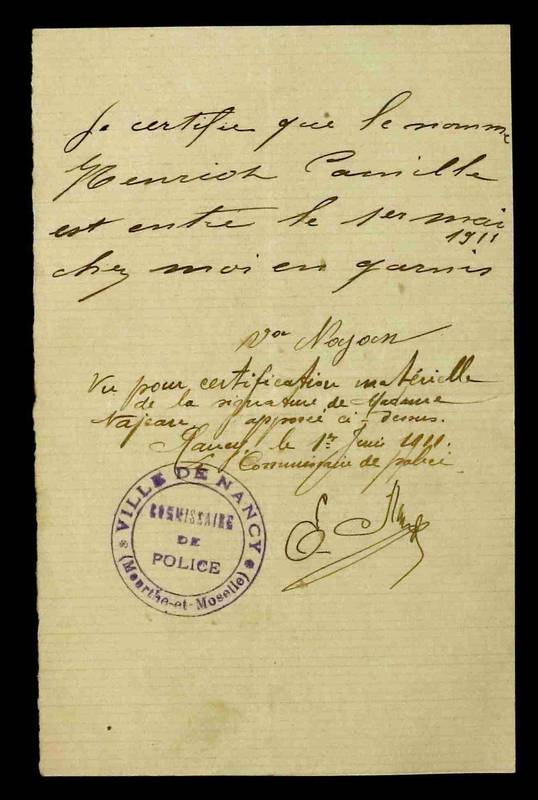 Je certifie que le nommé
Henrich Camille
est entré le 1er mai
1911
chez moi en garnis
Vve Najean
Vu pour certification matérielle
de la signature de Madame
Najean, apposée ci-dessus.
Nancy, le 1er Juin 1911.
Le Commissaire de police
E
VILLE DE NANCY
COMMISSAIRE
DE
POLICE
(Meurthe-et-Moselle)